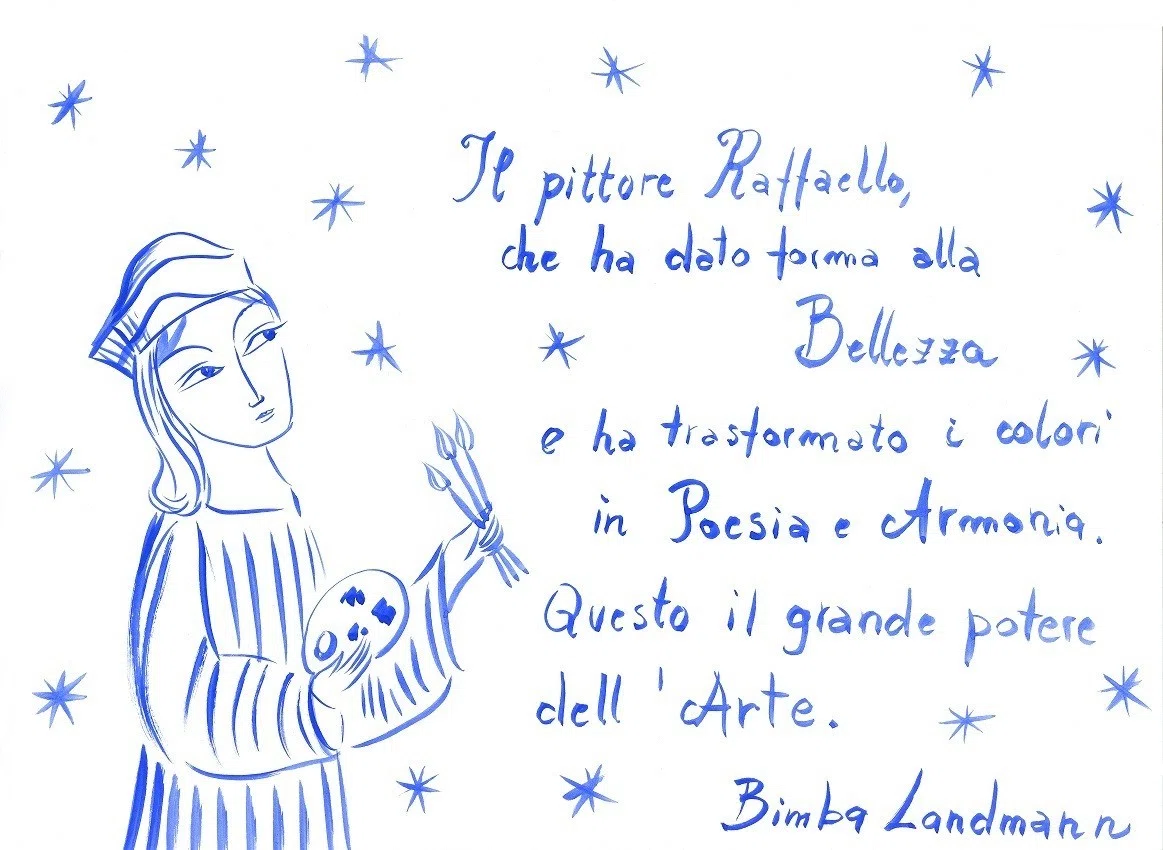 Il pittore Raffaello,
che ha dato forma alla
Bellezza
e ha trasformato i colori
in Poesia e Armonia.
Questo il grande potere
dell'Arte.
Bimba Landmann